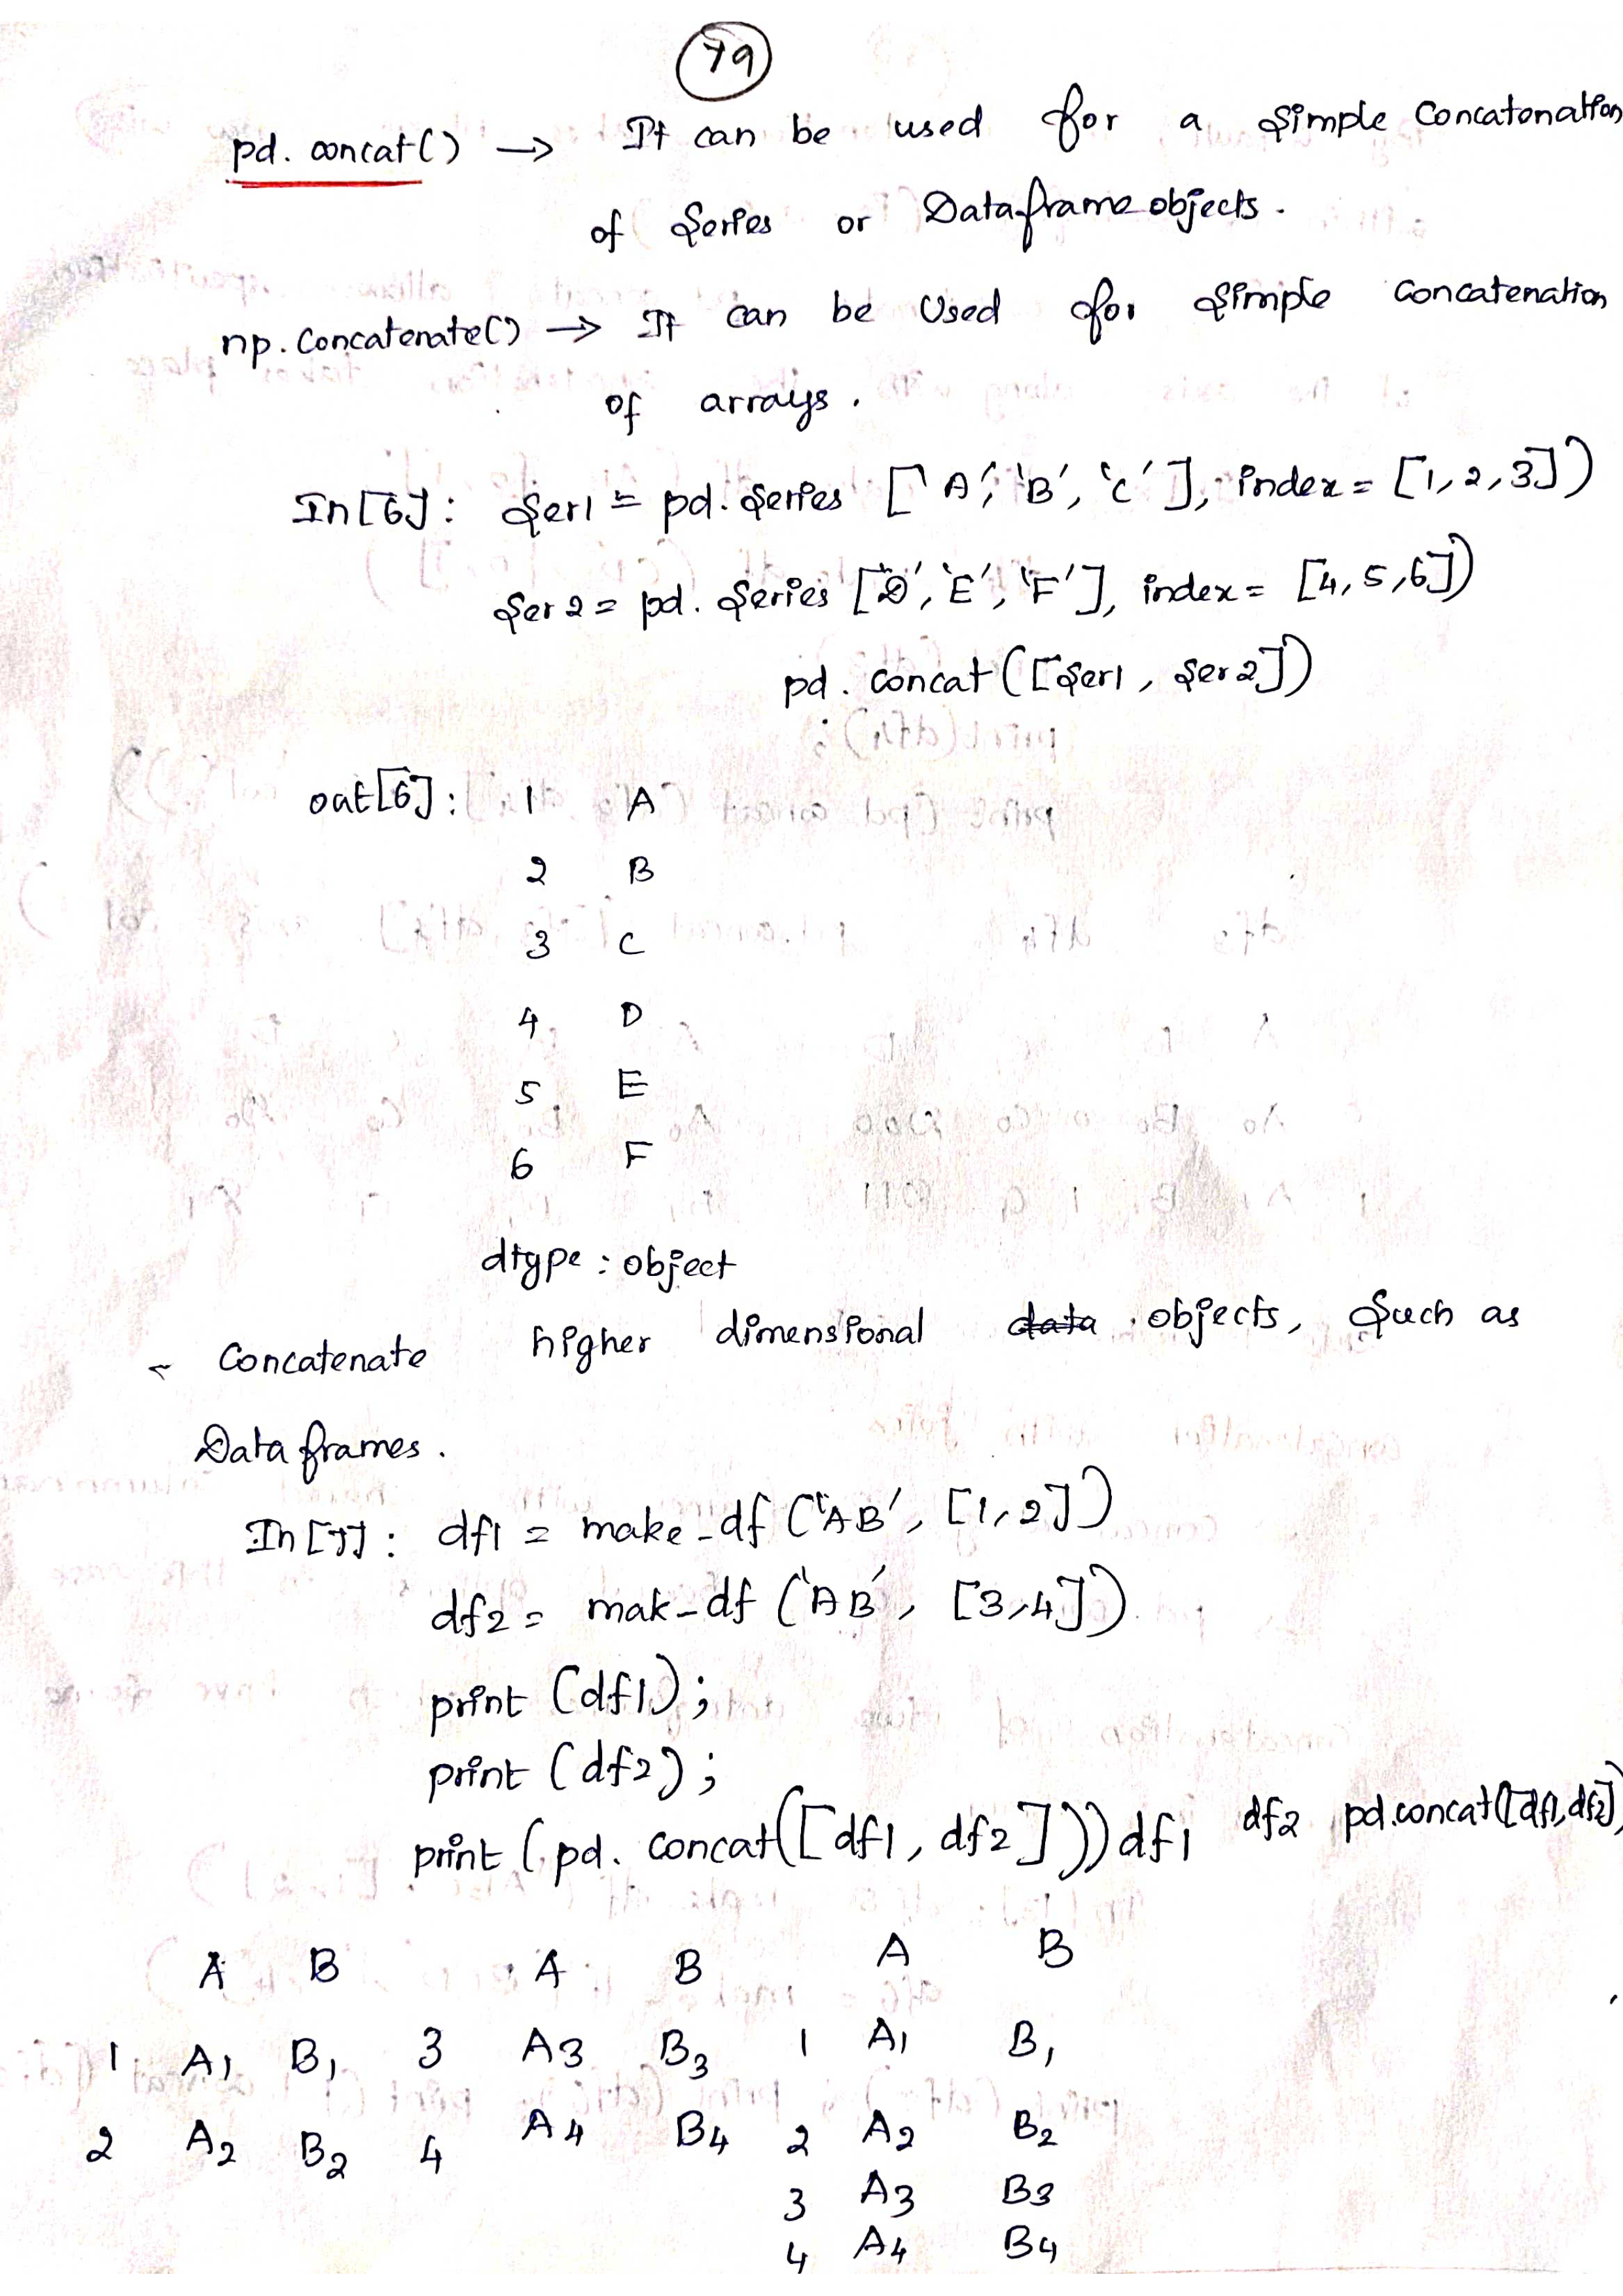 79
pd. concat() → It can be used for a simple Concatonation
of Series or Dataframe objects.
np. Concatenate() → It can be Used for simple Concatenation
of arrays.
In[6]: Ser1 = pd. Series ['A', 'B', 'C'], index = [1, 2, 3])
Ser2 = pd. Series ['D', 'E', 'F'], index = [4, 5, 6])
pd. concat ([Ser1, Ser2])
out[6]: 1 A
2 B
3 C
4 D
5 E
6 F
dtype: object
- Concatenate higher dimensional data objects, Such as
Data frames.
In [7]: df1 = make-df ('AB', [1, 2])
df2 = mak-df ('AB', [3, 4])
print (df1);
print (df2);
print (pd. concat([df1, df2])) df1 df2 pd.concat([df1, df2])
A B A B A B
1 A1 B1 3 A3 B3 1 A1 B1
2 A2 B2 4 A4 B4 2 A2 B2
3 A3 B3
4 A4 B4